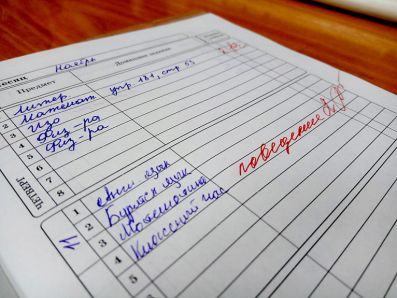 Ноябрь
Предмет
Домашнее задание
1 Литер
2 Математ упр 181, стр 65
3 Изо
4 Физ-ра
5 Физ-ра
6
7
8
ЧЕТВЕРГ
11
1 Англ язык
2 Бурятск язык
3 Математика
4 Классный час
5
поведение